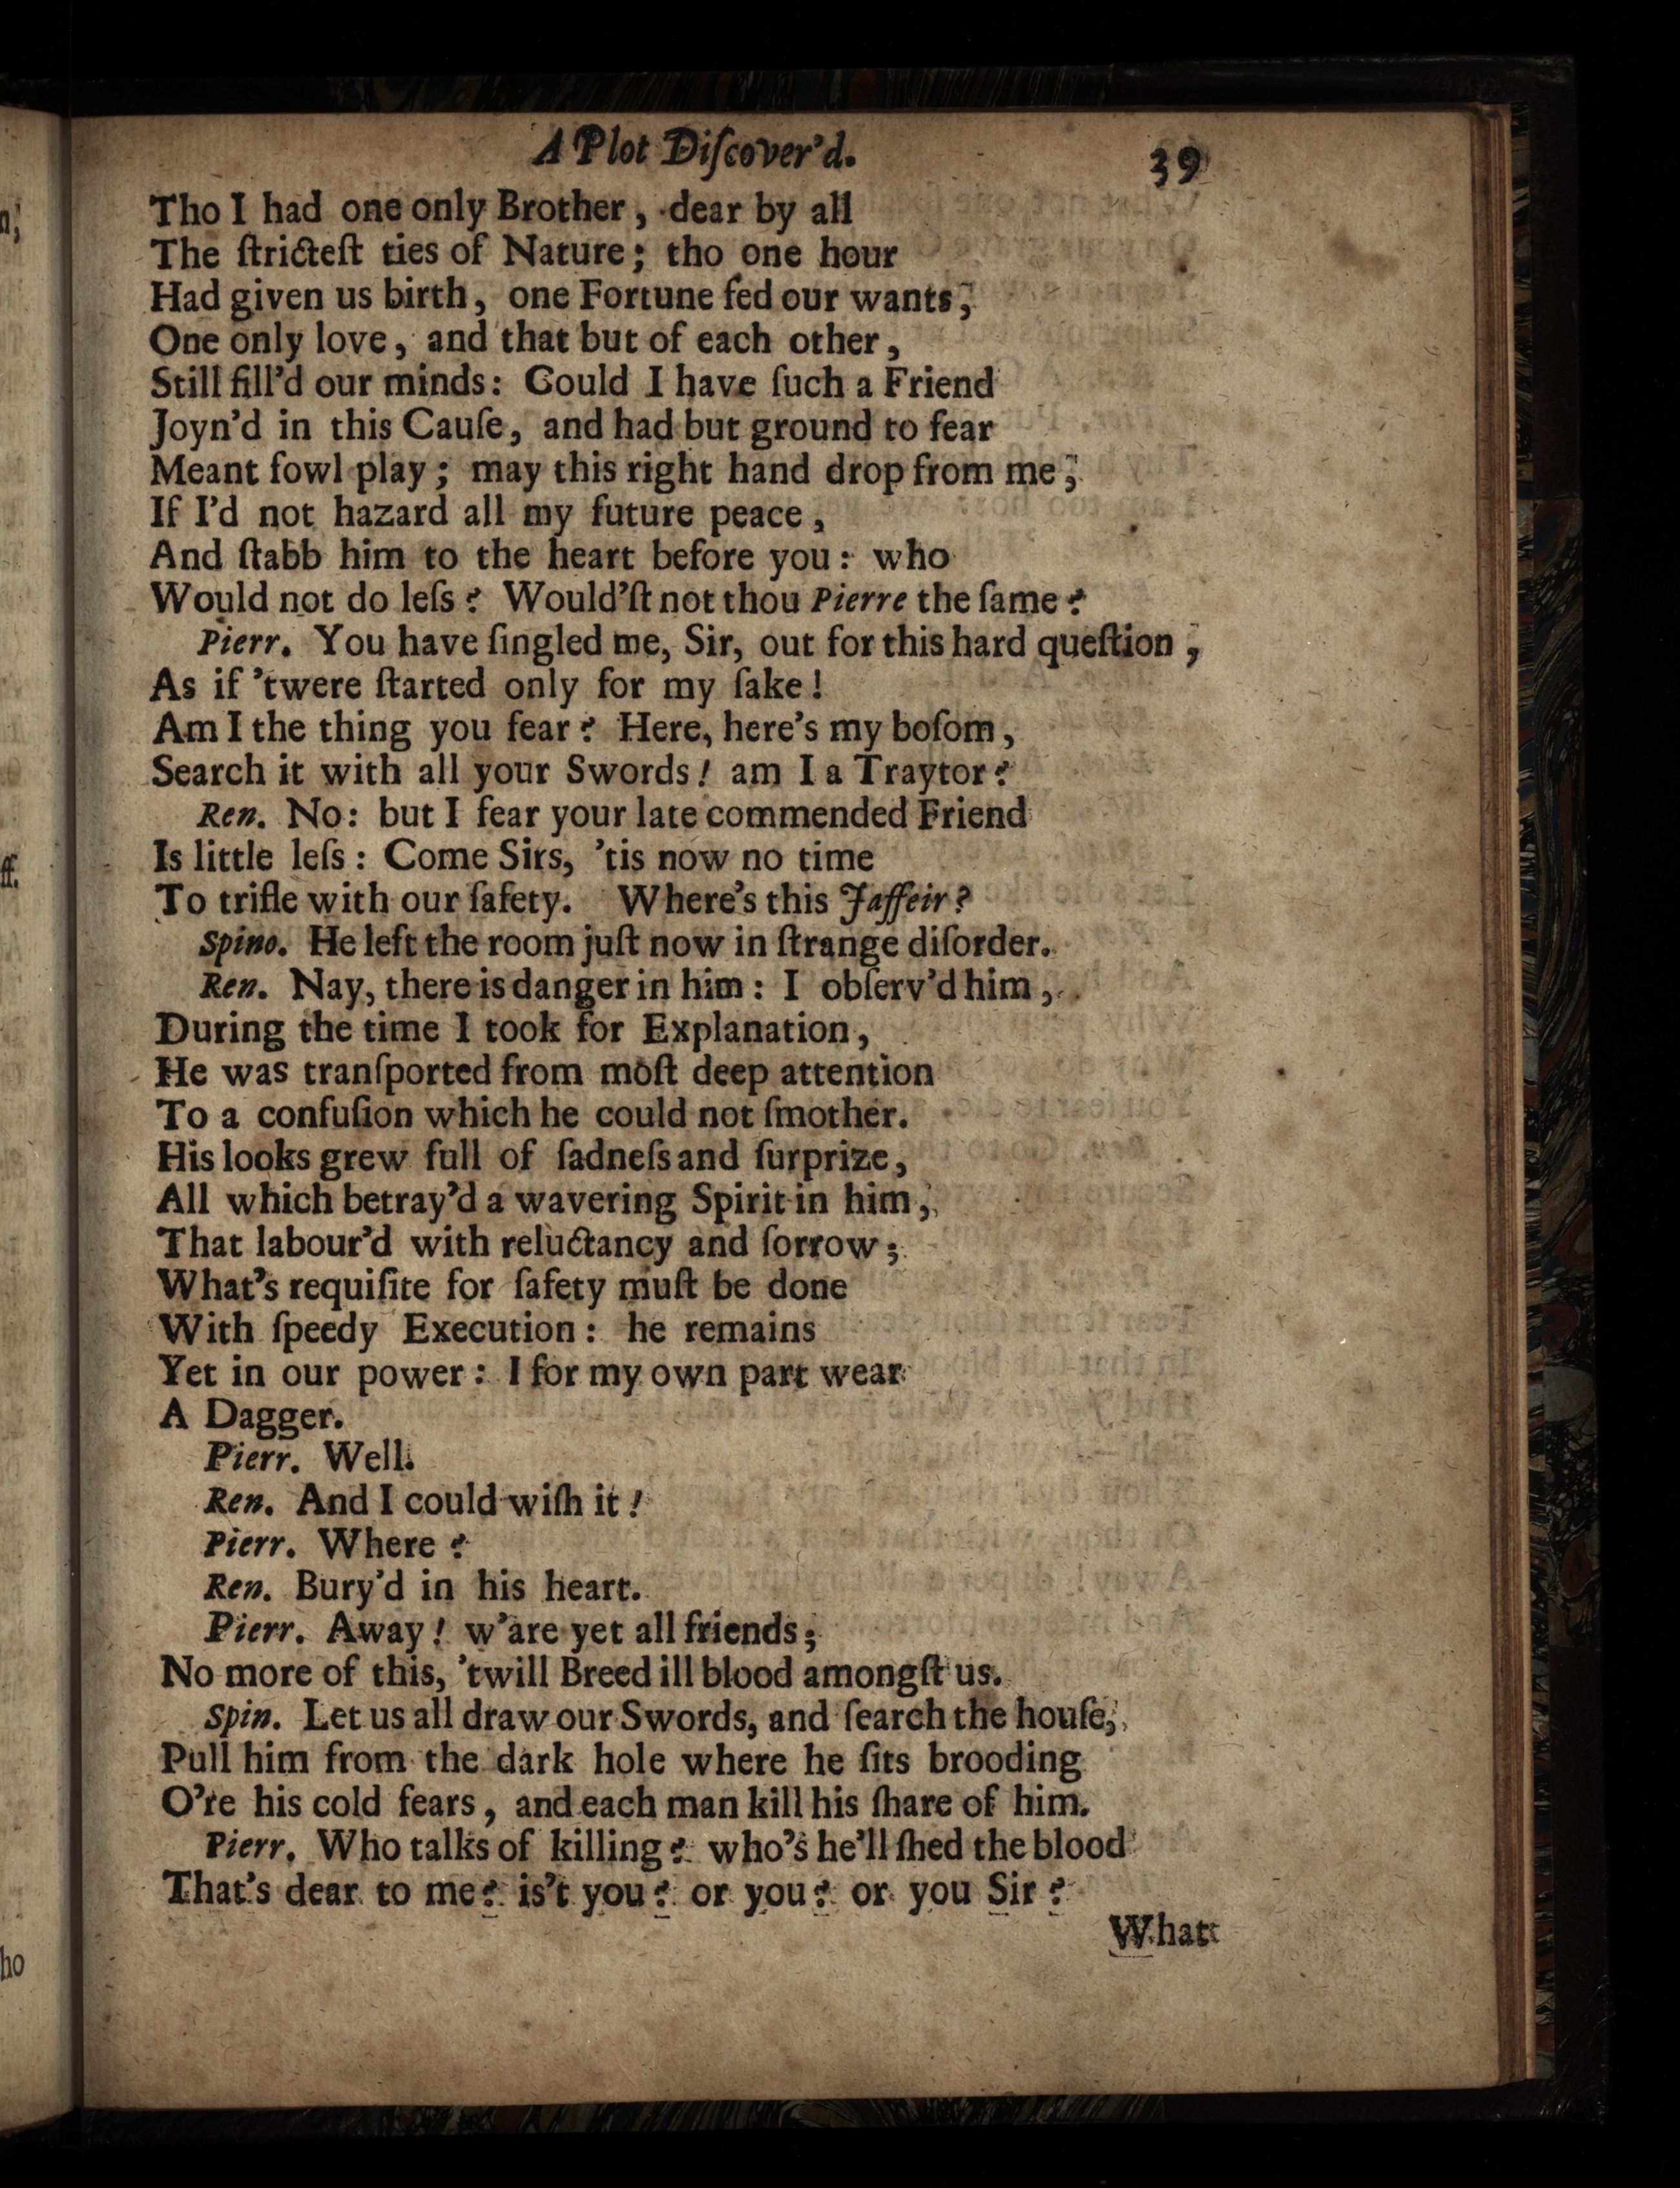 A Plot Diſcover'd.
39
Tho I had one only Brother, dear by all
The ſtricteſt ties of Nature; tho one hour
Had given us birth, one Fortune fed our wants,
One only love, and that but of each other,
Still fill'd our minds: Could I have ſuch a Friend
Joyn'd in this Cauſe, and had but ground to fear
Meant fowl play; may this right hand drop from me,
If I'd not hazard all my future peace,
And ſtabb him to the heart before you: who
Would not do leſs? Would'ſt not thou Pierre the ſame?
Pierr. You have ſingled me, Sir, out for this hard queſtion,
As if 'twere ſtarted only for my ſake!
Am I the thing you fear? Here, here's my boſom,
Search it with all your Swords! am I a Traytor?
Ren. No: but I fear your late commended Friend
Is little leſs: Come Sirs, 'tis now no time
To trifle with our ſafety. Where's this Jaffeir?
Spino. He left the room juſt now in ſtrange diſorder.
Ren. Nay, there is danger in him: I obſerv'd him,
During the time I took for Explanation,
He was tranſported from moſt deep attention
To a confuſion which he could not ſmother.
His looks grew full of ſadneſs and ſurprize,
All which betray'd a wavering Spirit in him,
That labour'd with reluctancy and ſorrow;
What's requiſite for ſafety muſt be done
With ſpeedy Execution: he remains
Yet in our power: I for my own part wear
A Dagger.
Pierr. Well.
Ren. And I could wiſh it!
Pierr. Where?
Ren. Bury'd in his heart.
Pierr. Away! w'are yet all friends;
No more of this, 'twill Breed ill blood amongſt us.
Spin. Let us all draw our Swords, and ſearch the houſe,
Pull him from the dark hole where he ſits brooding
O're his cold fears, and each man kill his ſhare of him.
Pierr. Who talks of killing? who's he'll ſhed the blood
That's dear to me? is't you? or you? or you Sir?
What
n,
ff.
ho